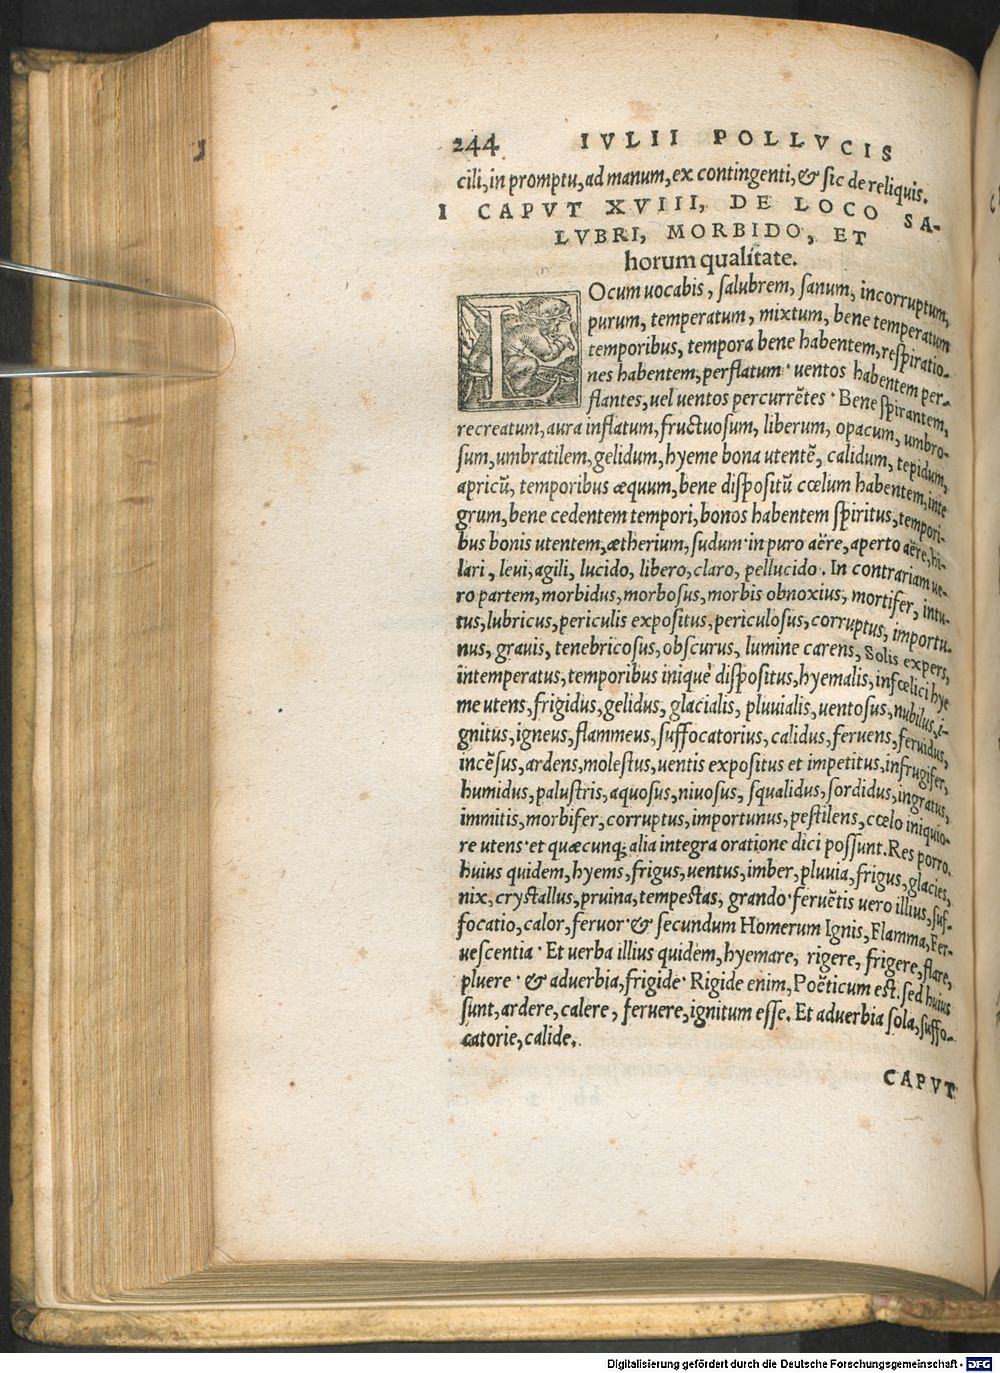 244 IVLII POLLVCIS
cili, in promptu, ad manum, ex contingenti, & sic de reliquis.
I CAPVT XVIII, DE LOCO SA-
LVBRI, MORBIDO, ET
horum qualitate.
LOcum uocabis, salubrem, sanum, incorruptum,
purum, temperatum, mixtum, bene temperatum
temporibus, tempora bene habentem, respiratio-
nes habentem, perflatum· uentos habentem per-
flantes, uel uentos percurrẽtes· Bene spirantem,
recreatum, aura inflatum, fructuosum, liberum, opacum, umbro-
sum, umbratilem, gelidum, hyeme bona utentẽ, calidum, tepidum,
apricũ, temporibus æquum, bene dispositũ cœlum habentem, inte
grum, bene cedentem tempori, bonos habentem spiritus, tempori-
bus bonis utentem, ætherium, sudum· in puro aëre, aperto aëre, hi-
lari, leui, agili, lucido, libero, claro, pellucido. In contrariam ue-
ro partem, morbidus, morbosus, morbis obnoxius, mortifer, intu-
tus, lubricus, periculis expositus, periculosus, corruptus, importu-
nus, grauis, tenebricosus, obscurus, lumine carens, Solis expers,
intemperatus, temporibus iniquè dispositus, hyemalis, infœlici hye
me utens, frigidus, gelidus, glacialis, pluuialis, uentosus, nubilus, i-
gnitus, igneus, flammeus, suffocatorius, calidus, feruens, feruidus,
incẽsus, ardens, molestus, uentis expositus et impetitus, infrugifer,
humidus, palustris, aquosus, niuosus, squalidus, sordidus, ingratus,
immitis, morbifer, corruptus, importunus, pestilens, cœlo iniquio-
re utens· et quæcunq; alia integra oratione dici possunt. Res porro,
huius quidem, hyems, frigus, uentus, imber, pluuia, frigus, glacies,
nix, crystallus, pruina, tempestas, grando· feruẽtis uero illius, suf-
focatio, calor, feruor· & secundum Homerum Ignis, Flamma, Fer-
uescentia· Et uerba illius quidem, hyemare, rigere, frigere, flare,
pluere· & aduerbia, frigide· Rigide enim, Poëticum est. sed huius
sunt, ardere, calere, feruere, ignitum esse. Et aduerbia sola, suffo-
catorie, calide.
CAPVT
Digitalisierung gefördert durch die Deutsche Forschungsgemeinschaft - DFG